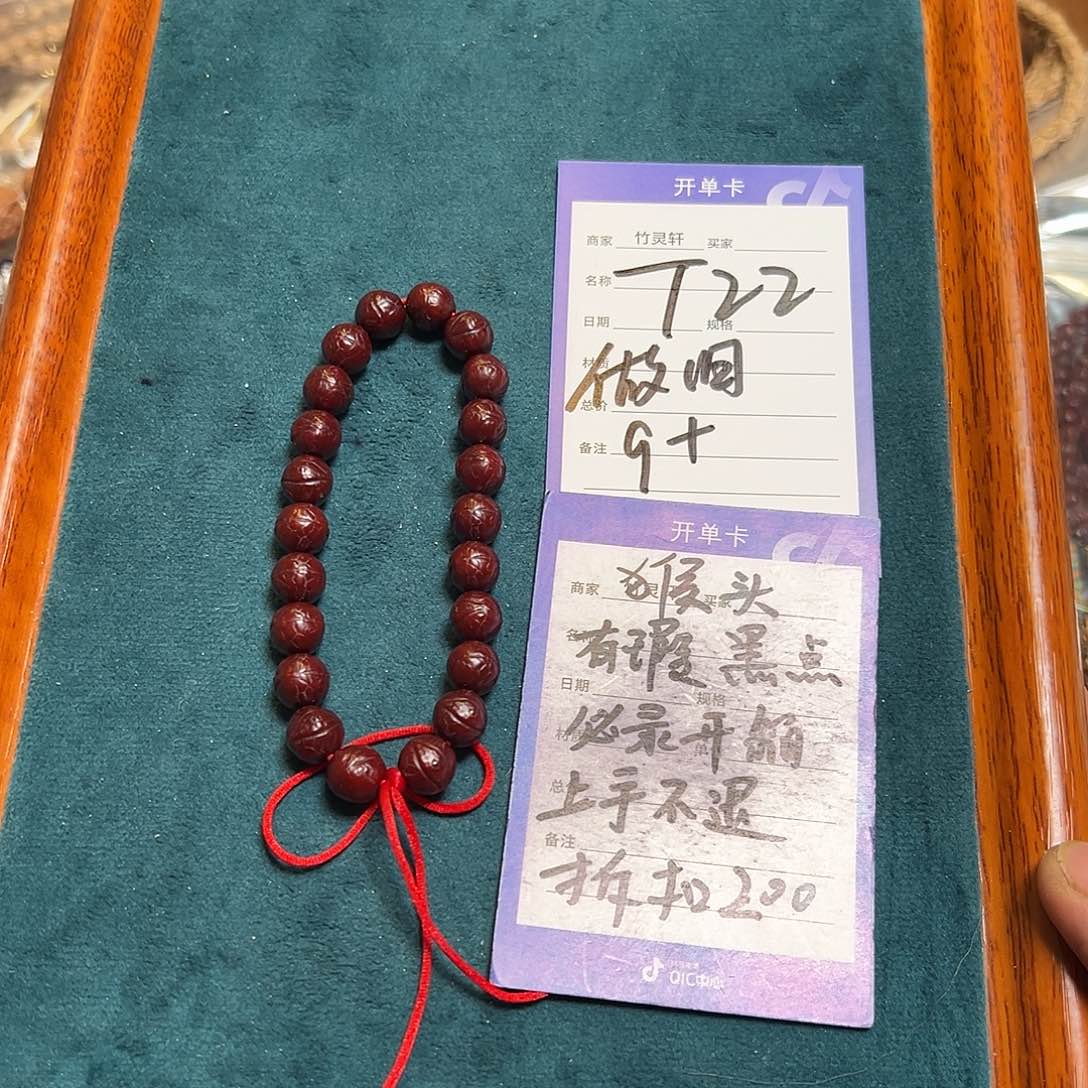 开单卡
商家 竹灵轩 买家
名称 T22
日期 规格
材质 做旧
总价
备注 9+
开单卡
商家 灵 买家 猴头
有瑕 黑点
日期 规格
必录开箱
上手不退
备注
拆扣200
QIC中心